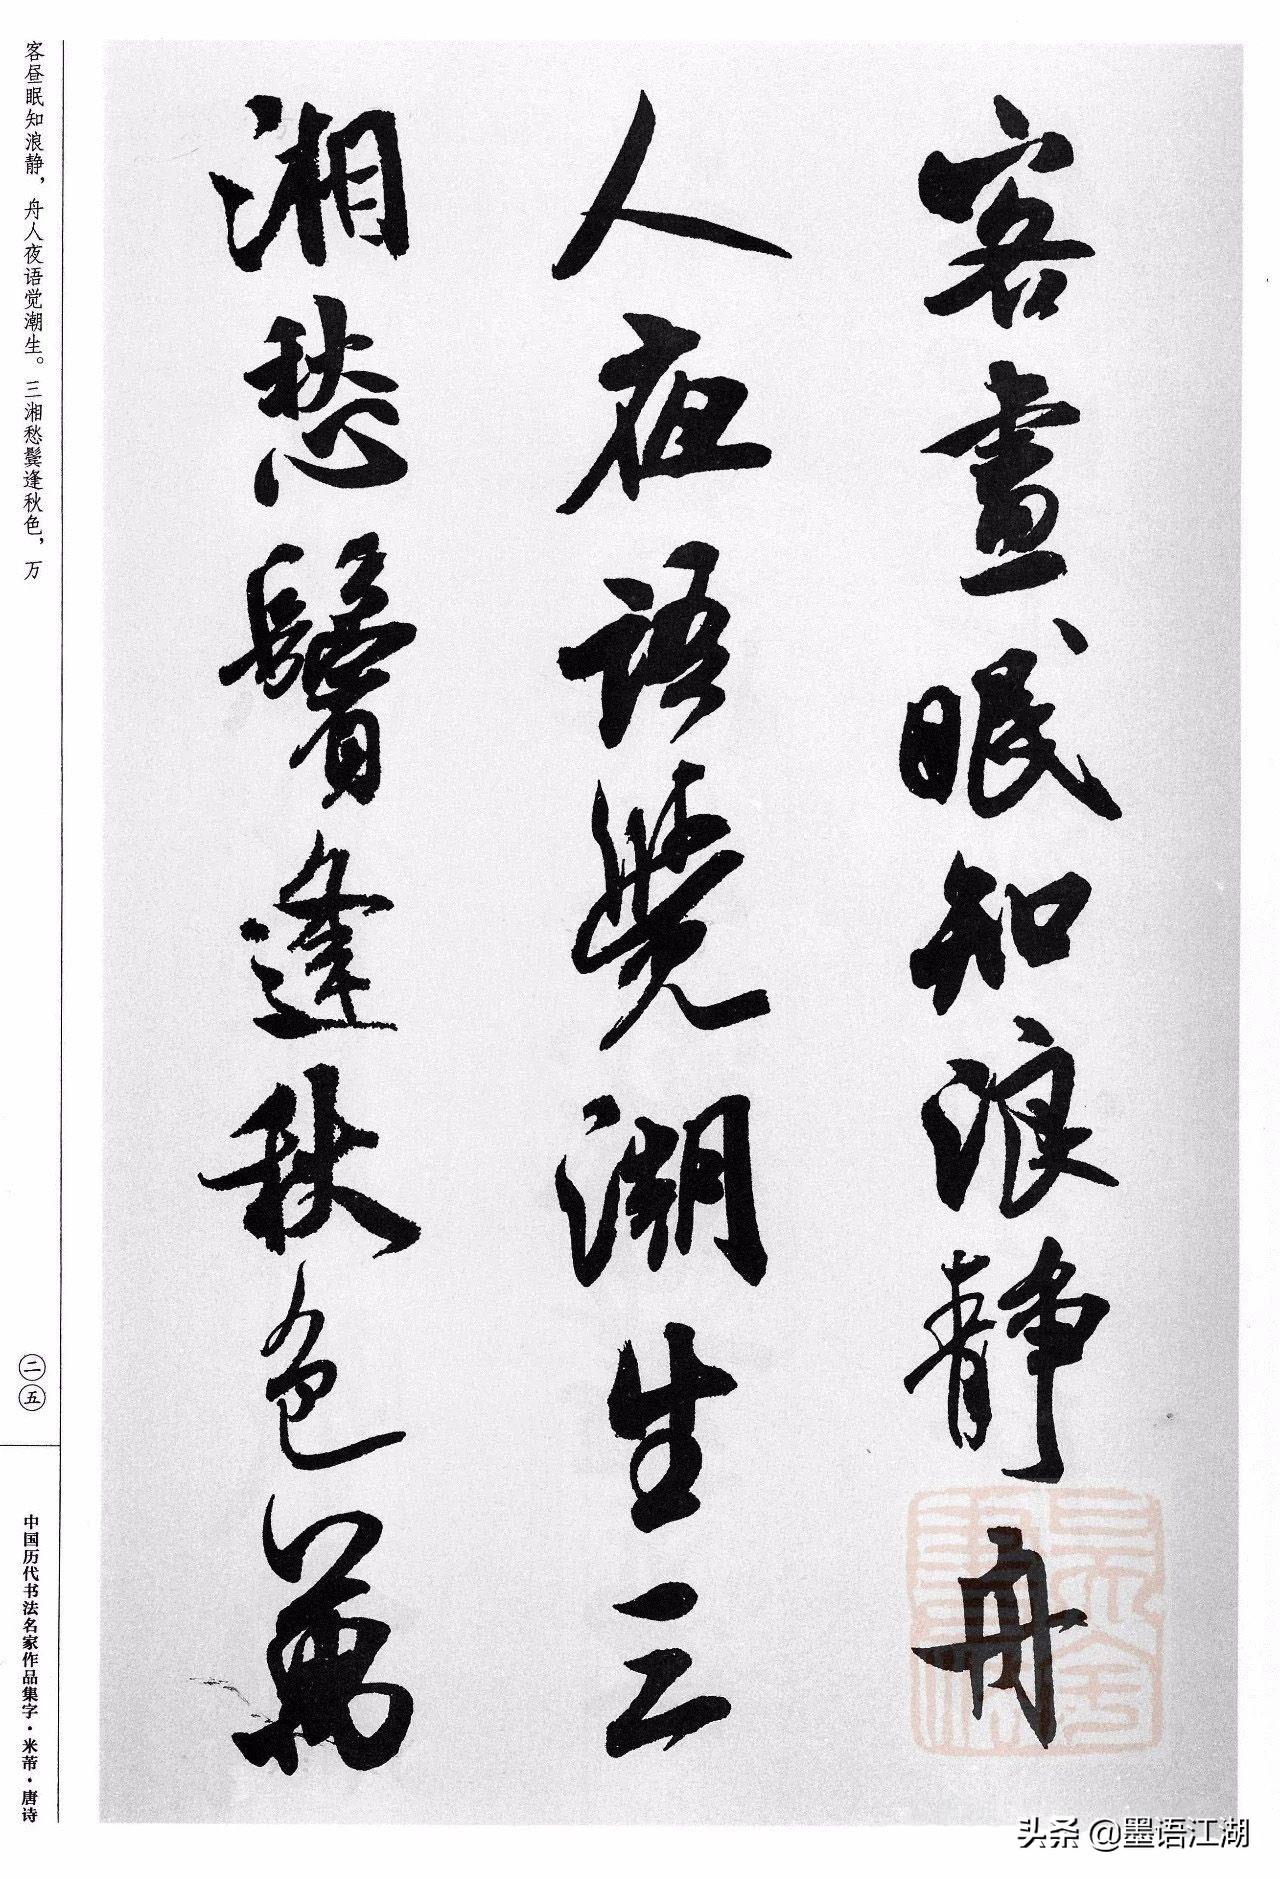 客晝眠知浪靜舟
人夜語覺潮生三
湘愁鬢逢秋色萬
客昼眠知浪静，舟人夜语觉潮生。三湘愁鬓逢秋色，万
二五
中国历代书法名家作品集字·米芾·唐诗
头条 @墨语江湖